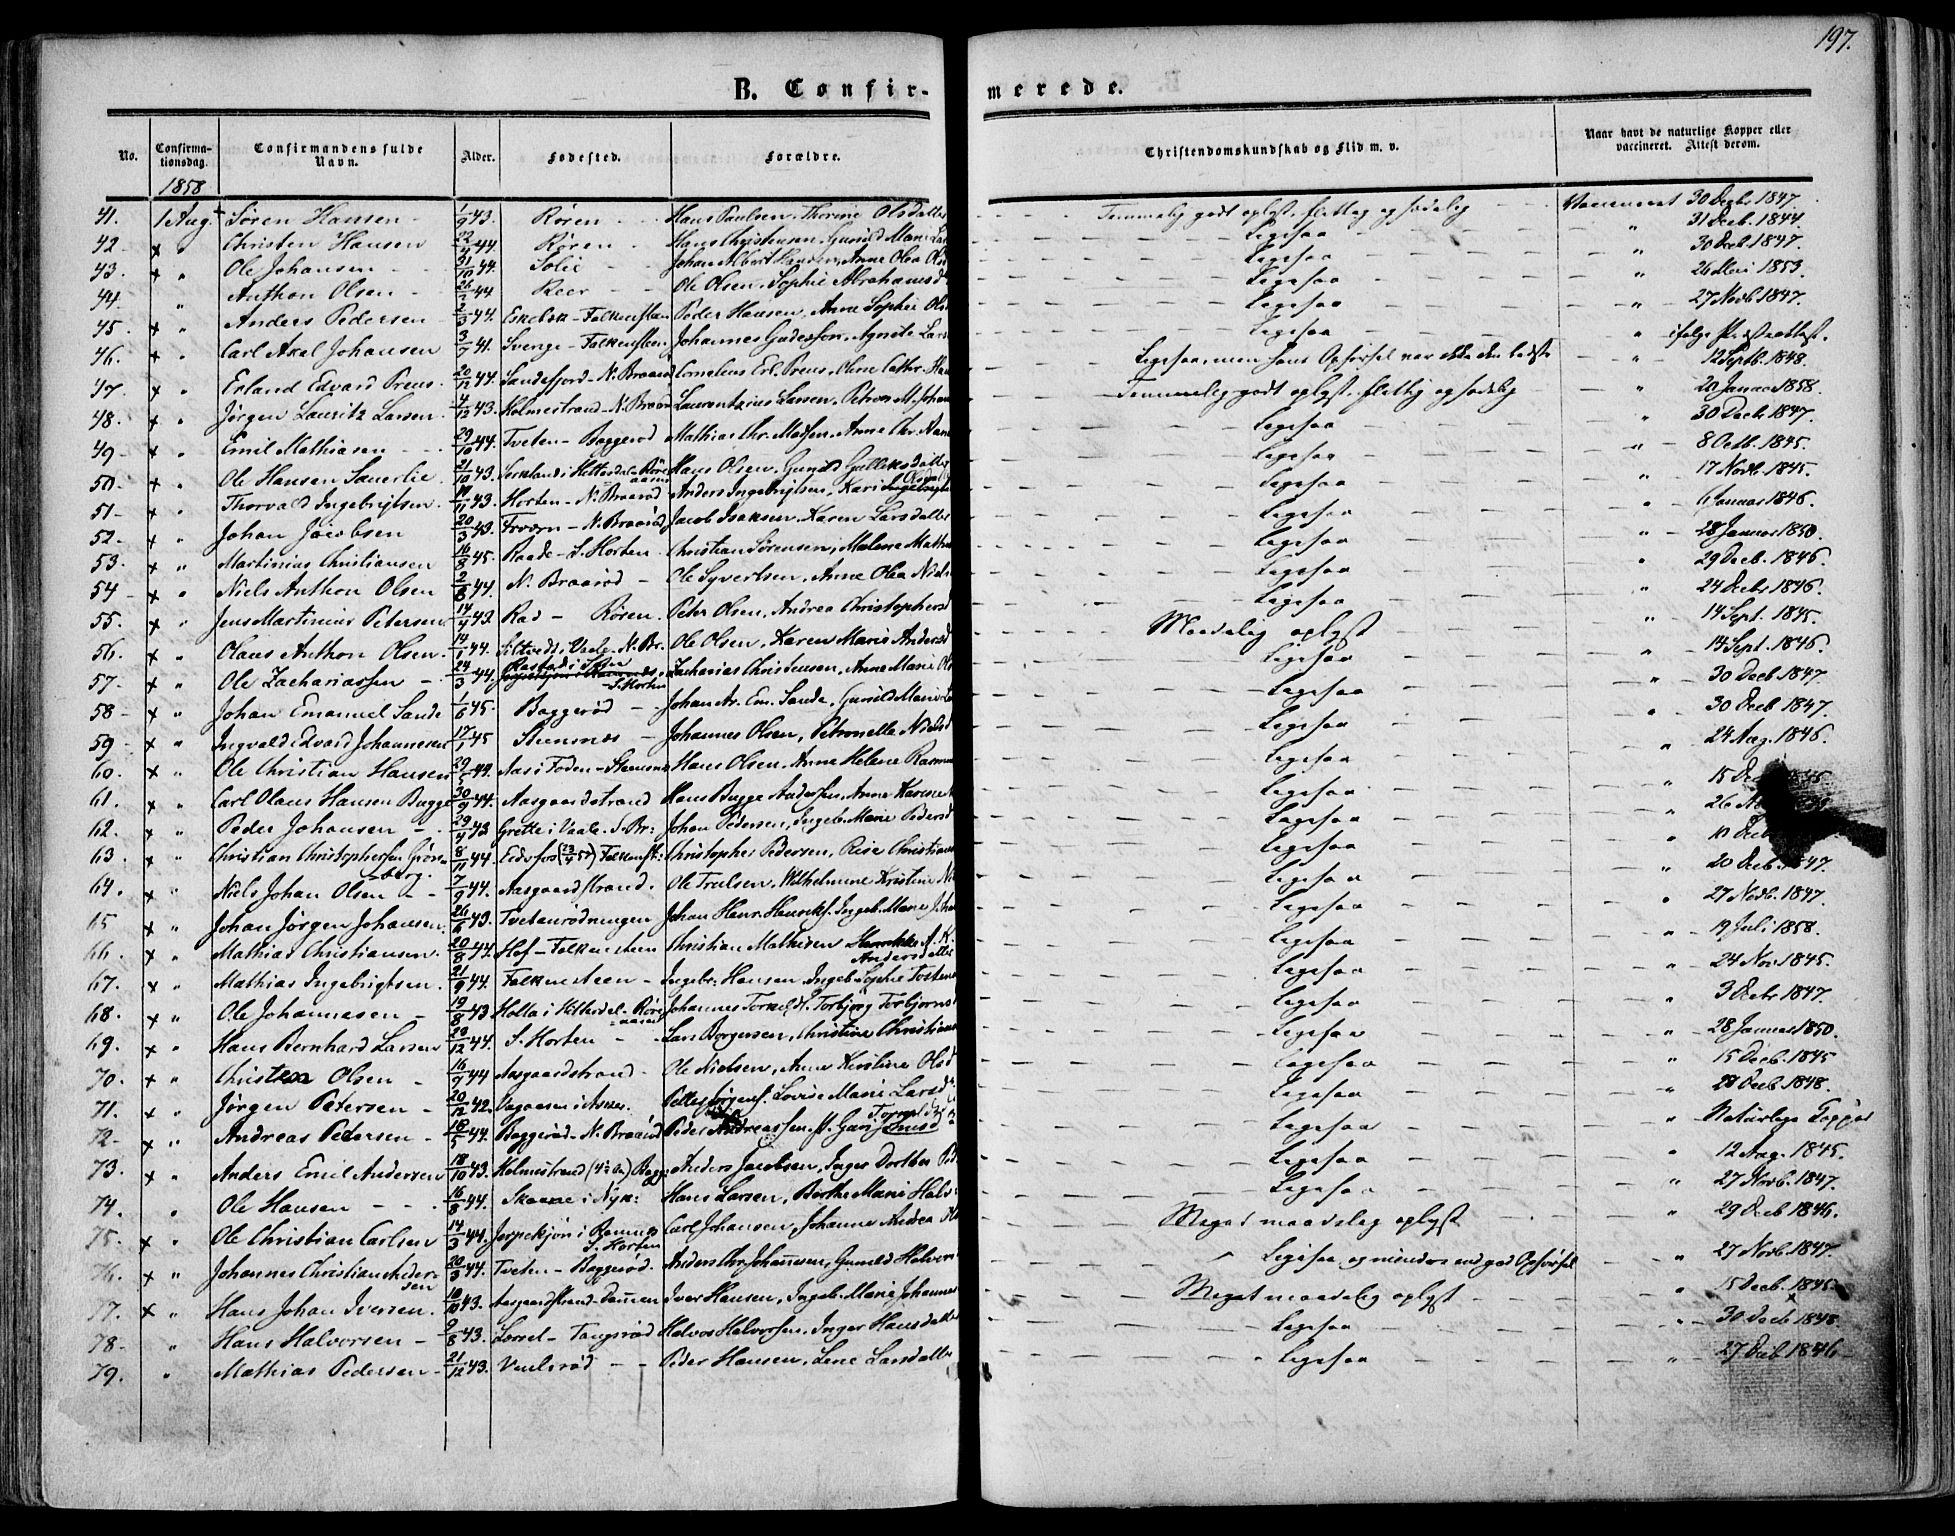 197.
B. Confirmerede.
No. Confirmationsdag. Confirmandens fulde Navn. Alder. Fødested. Forældre. Christendomskundskab og Flid m. v. Naar havt de naturlige Kopper eller vaccineret. Attest derom.
1858
41. 1 Aug. Søren Hansen 1/9 43. Røren Hans Paulsen, Thorine Olsdatter Temmelig godt oplyst, flittig og sædelig Vaccineret 30 Decb. 1847.
42. x " Christen Hansen 22/4 44 Røren Hans Christensen, Gunild Marie Lars Ligesaa " 31 Decb. 1844.
43. x " Ole Johansen 31/10 44. Solie Johan Albert Anne Olea Ols Ligesaa " 30 Decb. 1847.
44. " Anthon Olsen 26/2 44 Reer Ole Olsen, Sophie Abrahamsd Ligesaa " 26 Mai 1853.
45. x " Anders Pedersen 2/3 44. Falkensten Peder Hansen, Anne Sophie Ols Ligesaa " 27 Novb. 1847.
46. x " Carl Axel Johansen 3/7 41. Sverige - Falkensteen Johannes Agnete Lars Ligesaa " ifølge Præsteattest.
47. x " Erland Edvard Preus 20/12 44. Sandefjord - N. Braarød Cornelius Erl. Preus, Oline Cathr. Han Ligesaa, men hans Opførsel var ikke den bedste " 12 Septb. 1848.
48. x " Jørgen Lauritz Larsen 4/12 43. Holmestrand - N. Braarød Laurentzius Larsen, Petron M. Johan Temmelig godt oplyst, flittig og sædelig " 20 Januar 1858.
49. x " Emil Mathiasen 29/10 44. Tveten - Baggerød Mathias Chr. Madsen, Anne Chr. Hans Ligesaa " 30 Decb. 1847.
50. x " Ole Hansen Sauerlie 21/10 43. Hitterdal - Røre aasen Hans Olsen, Gunild Gulliksdatter Ligesaa " 8 Octb. 1845.
51. x " Thorvald Ingebrigtsen 19/11 43. Horten - N. Braarød Anders Ingebrigtsen, Kari Olsd Ligesaa " 17 Novb. 1845.
52. x " Johan Jacobsen 20/3 43. Frogn - N. Braarød Jacob Isaksen, Karen Larsdatter Ligesaa " 6 Januar 1846.
53. x " Martinius Christiansen 16/8 45. Raade - S. Horten Christian Sørensen, Malene Mathis Ligesaa " 28 Januar 1850.
54. x " Niels Anthon Olsen 2/6 44. N. Braarød Ole Syvertsen, Anne Olea Niels Ligesaa " 29 Decb. 1846.
55. x " Jens Martinius Petersen 14/4 43. Rad - Røren Peter Olsen, Andrea Christophersd Ligesaa " 24 Decbr 1846.
56. x " Olaus Anthon Olsen 14/1 44. i Vaale - N. Br. Ole Olsen, Karen Marie Andersd Maadelig oplyst " 14 Sept. 1845.
57. x " Ole Zachariassen 24/3 44. Rastad i - S. Horten Zacharias Christensen, Anne Marie Ols Ligesaa " 13 Sept. 1846.
58. x " Johan Emanuel Sande 1/6 45. Baggerød Johan Ar. Em. Sande, Gunild Marie L Ligesaa " 30 Decb 1847
59. x " Ingvald Edvard Johannesen 17/1 45 Steensnæs Johannes Olsen, Petronelle Nielsd Ligesaa " 30 Decb 1847.
60. x " Ole Christian Hansen 29/5 44. Aas i - Steensnæs Hans Olsen, Anne Helene Rasmu Ligesaa " 24 Aug. 1846.
61. x " Carl Olaus Hansen Bugge 30/9 44. Aasgaardstrand Hans Bugge Anderssen, Anne Karine Ligesaa " 15 Dec
62. x " Peder Johansen 29/4 43 Grette i Vaale. S. Br: Johan Pedersen, Ingeb. Marie Pedersd Ligesaa " 26
63. x " Christian Christophersen Grøn- berg. 8/11 44. Eidsfos Falkenst: Christopher Pedersen, Rise Christians Ligesaa " 10 Decb
64. x " Niels Johan Olsen 7/9 44. Aasgaardstrand. Ole Trulsen, Wilhelmine Kristine Ni Ligesaa " 20 Decb. 1847.
65 x " Johan Jørgen Johansen. 26/6 43. Tvetanrødningen Johan Henr. Henrikss. Ingeb. Marie Joha Ligesaa " 27 Novb. 1847.
66. x " Mathias Christiansen 20/8 44. Hof - Falkensteen Christian Mathisen A. K. Andersdatter Ligesaa " 19 Juli 1858.
67. x " Mathias Ingebrigtsen 21/9 44. Falkensteen Ingebr: Hansen, Ingeb. Sophie Tostens Ligesaa " 24 Nov 1845.
68. x " Ole Johannesen 19/8 43 Holla i Hitterdal - Røre aasen Johannes Torbjørg Torbjørnsd Ligesaa " 3 Decbr 1847.
69. x " Hans Bernhard Larsen 29/12 44. S. Horten Lars Borgersen, Christine Christians Ligesaa " 28 Januar 1850.
70. x " Christen Olsen 16/9 44 Aasgaardstrand Ole Nielsen, Anne Kirstine Olsd Ligesaa " 15 Decb. 1845
71. x " Jørgen Petersen 20/12 42. i Asker. Lovise Marie Larsd Ligesaa " 28 Decb. 1848.
72. x " Andreas Pedersen 18/5 44. Baggerød - N. Braarød Peder Andreassen Ligesaa " Naturlige Kopper
73. x " Anders Emil Andersen 18/10 43. Holmestrand Bagg: Anders Jacobsen, Inger Dorthea Ped Ligesaa " 12 Aug. 1845.
74. " Ole Hansen 16/8 44. i Nyk: Hans Larsen, Berthe Marie Halv Ligesaa " 27 Novb. 1847.
75. x " Ole Christian Carlsen 14/3 44. i Ramnes S. Horten Carl Johansen, Johanne Andrea Meget maadelig oplyst " 29 Decb 1846.
76. x " Johannes Christian Anders- sen 20/3 44. Tveten - Baggerød. Anders Chr. Johannesen, Gunild Halvors Ligesaa og mindre end god Opførsel " 27 Novb. 1847.
77. x " Hans Johan Iversen 10/10 43. Aasgaardstrand - Iver Hansen, Ingeb. Marie Johannes Meget maadelig oplyst " 15 Decb. 1845
78. " Hans Halvorsen 9/8 43. - Tangsrød Halvor Halvorsen, Inger Hansdatter Ligesaa " 30 Decb 1848
79. " Mathias Pedersen 21/12 43. Peder Hansen, Lene Larsdatter Ligesaa " 27 Decb. 1846